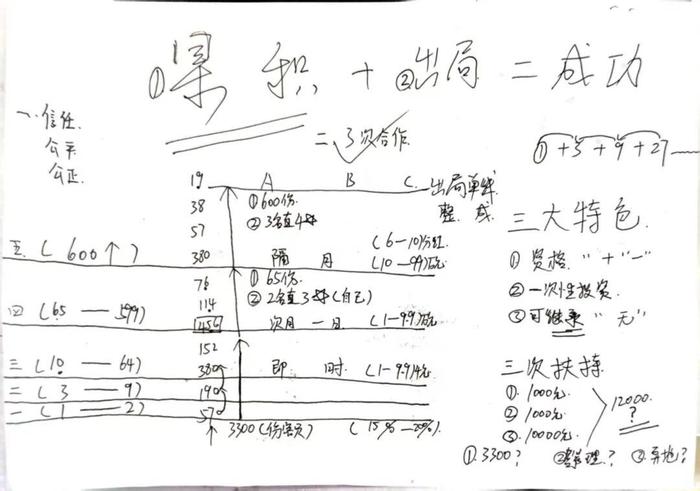 ① 累 积 + ② 出局 = 成功
一、信任.
公平
公正.
二、3次合作.
① + 3 + 9 + 27
19
38
57
380
76
114
456
152
380
190
57
A B C
出局单线
整 成
① 600份.
② 3名直
(6-10)分红
隔 月
(10-99)万元
五 ( 600 ↑ )
① 65份
② 2名直3 (自己)
次月一日 (1-9.9)万元
四 ( 65 —— 599)
三 ( 10 —— 64)
即 时 (1-9.9)千元
二 ( 3 —— 9)
一 ( 1 —— 2)
3300 ( ( 15% - 20%).
三大特色.
① 资格 "+" "-"
② 一次性投资.
③ 可继承 "无"
三次扶持
①. 1000元.
② 1000元.
③. 10000元.
12000.
?
①. 3300? ② 理? ③ 异地?